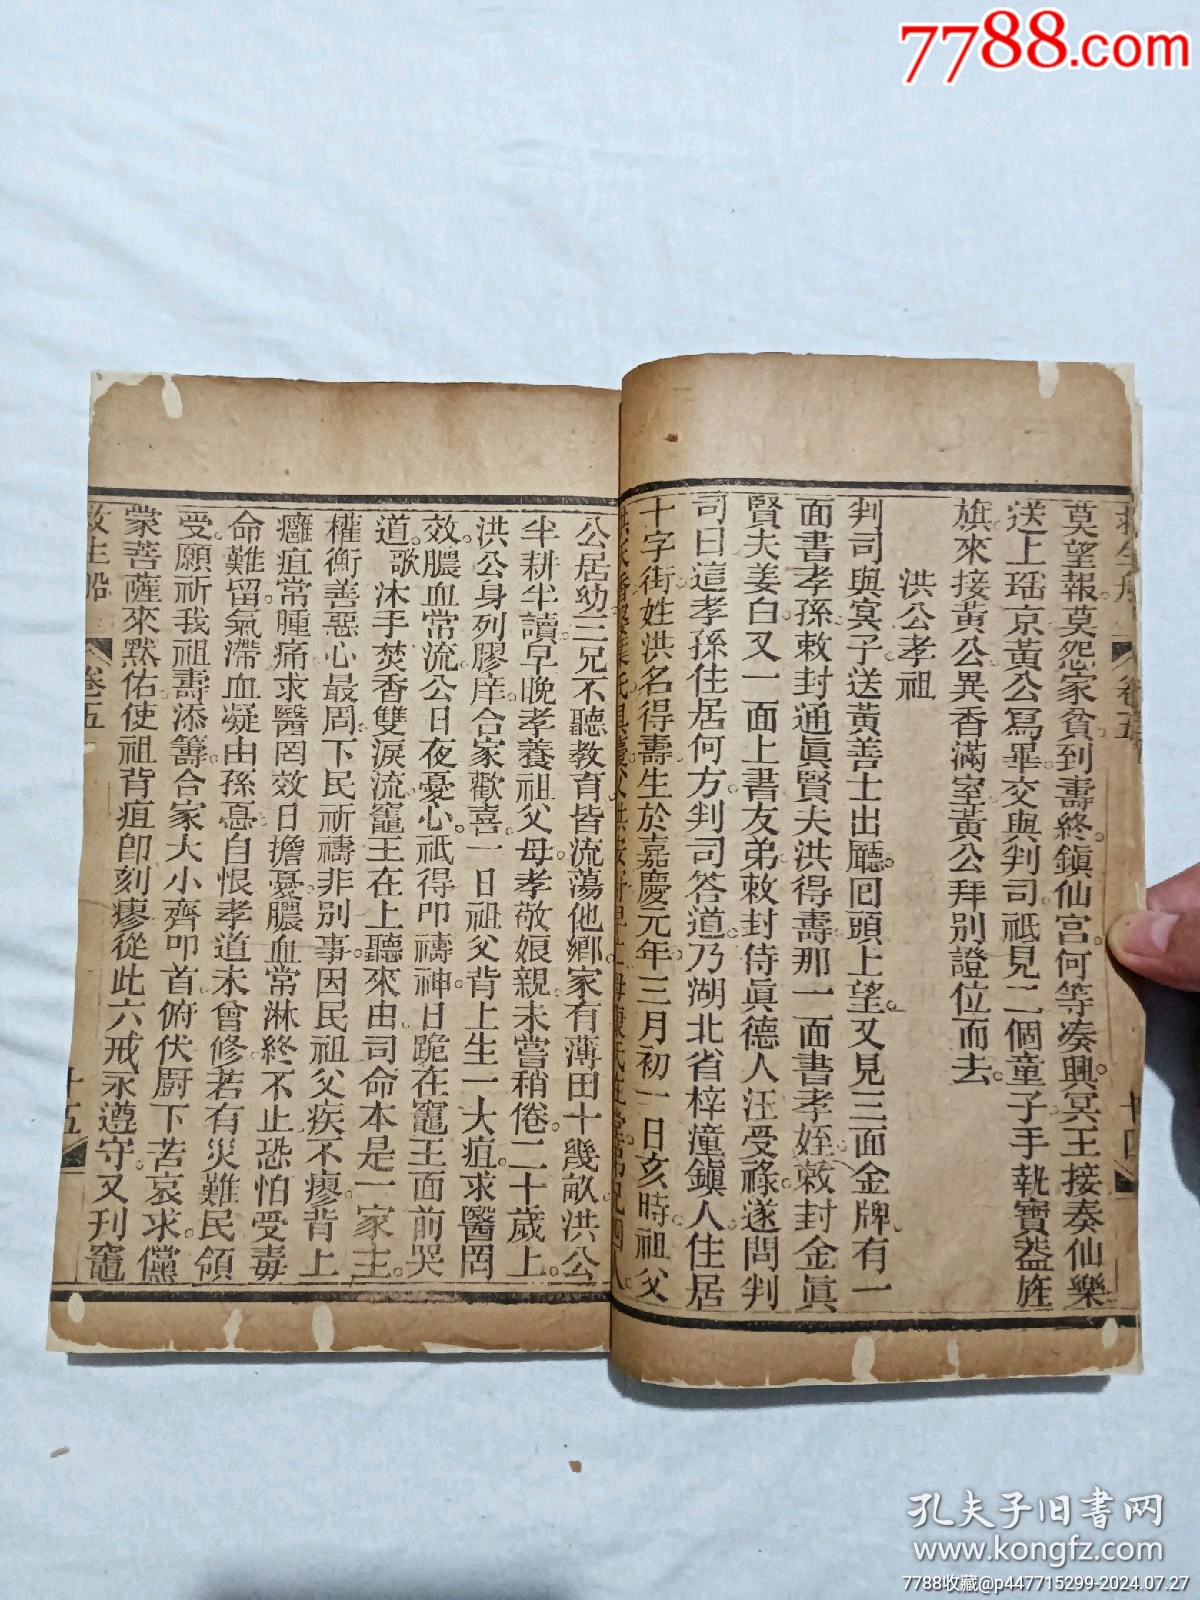 7788.com
莫望報莫怨家貧到壽終鎮仙宮何等凑興冥王接奏仙樂
送上瑤京黃公寫畢交與判司祗見二個童子手執寶蓋旌
旗來接黃公異香滿室黃公拜別證位而去
洪公孝祖
判司與冥子送黃善士出廳回頭上望又見三面金牌有一
面書孝孫敕封通眞賢夫洪得壽那一面書孝姪敕封金眞
賢夫姜白又一面上書友弟敕封侍眞德人汪受祿遂問判
司曰這孝孫住居何方判司答道乃湖北省梓潼鎮人住居
十字街姓洪名得壽生於嘉慶元年三月初一日亥時祖父
公居幼三兄不聽教育皆流蕩他鄉家有薄田十幾畝洪公
半耕半讀早晚孝養祖父母孝敬娘親未嘗稍倦二十歲上
洪公身列膠庠合家歡喜一日祖父背上生一大疽求醫罔
效膿血常流公日夜憂心祗得叩禱神日跪在竈王面前哭
道歌沐手焚香雙淚流竈王在上聽來由司命本是一家主
權衡善惡心最周下民祈禱非別事因民祖父疾不瘳背上
癰疽常腫痛求醫罔效日擔憂膿血常淋終不止恐怕受毒
命難留氣滯血凝由孫愆自恨孝道未曾修若有災難民領
受願祈我祖壽添籌合家大小齊叩首俯伏厨下苦哀求儻
蒙菩薩來默佑使祖背疽卽刻瘳從此六戒永遵守又刋竈
救生船 卷五 十五
孔夫子旧书网
www.kongfz.com
7788收藏@p447715299-2024.07.27